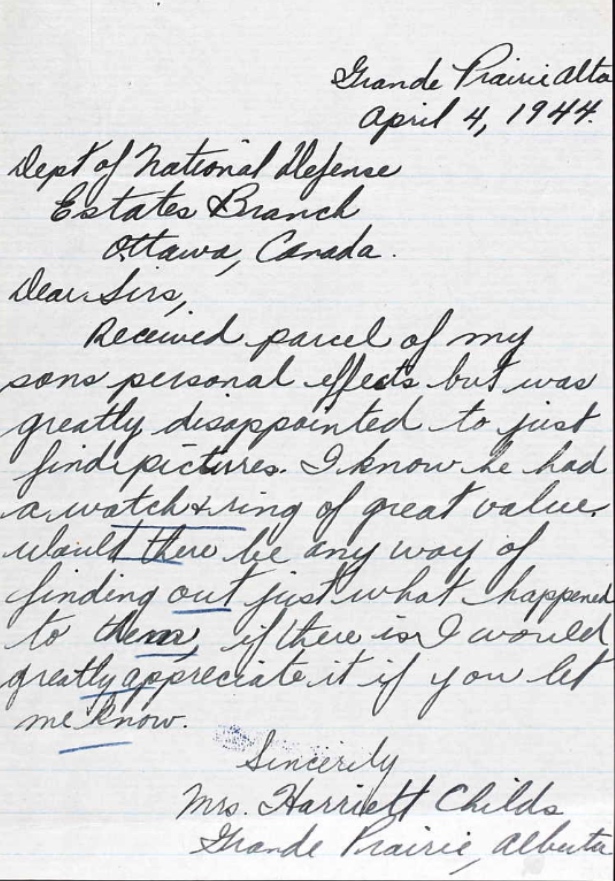 Grande Prairie Alta
April 4, 1944.
Dept of National Defense
Estates Branch
Ottawa, Canada.
Dear Sirs,
Received parcel of my
sons personal effects but was
greatly disappointed to just
find pictures. I know he had
a watch & ring of great value.
would there be any way of
finding out just what happened
to them, if there is I would
greatly appreciate it if you let
me know.
Sincerily
Mrs. Harriett Childs
Grande Prairie, Alberta